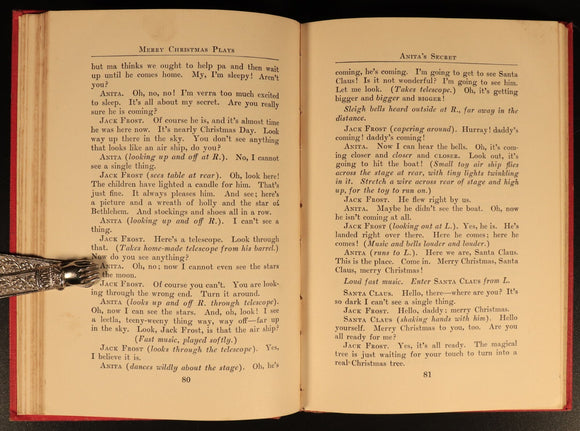 MERRY CHRISTMAS PLAYS
but ma thinks we ought to help pa and then wait
up until he comes home. My, I'm sleepy! Aren't
you?
ANITA. Oh, no, no! I'm verra too much excited
to sleep. It's all about my secret. Are you really
sure he is coming?
JACK FROST. Of course he is, and it's almost time
he was here now. It's nearly Christmas Day. Look
way up there in the sky. You don't see anything
that looks like an air ship, do you?
ANITA (looking up and off at R.). No, I cannot
see a single thing.
JACK FROST (sees table at rear). Oh, look here!
The children have lighted a candle for him. That's
just fine. It always pleases him. And see: here's
a picture and a wreath of holly and the star of
Bethlehem. And stockings and shoes all in a row.
ANITA (looking up and off at R.). I can't see a
thing.
JACK FROST. Here's a telescope. Look through
that. (Takes home-made telescope from his barrel.)
Now do you see anything?
ANITA. Oh, no; now I cannot even see the stars
the moon.
JACK FROST. Of course you can't. You are look-
ing through the wrong end. Turn it around.
ANITA (looks up and off R. through telescope).
Oh, now I can see the stars. And, oh, look! I see
a leetla, teeny-weeny thing way, way off—far up
in the sky. Look, Jack Frost, is that the air ship?
(Fast music, played softly.)
JACK FROST (looks through the telescope). Yes,
I believe it is.
ANITA (dances wildly about the stage). Oh, he's
80
ANITA'S SECRET
coming, he's coming. I'm going to get to see Santa
Claus! Is it not wonderful? I'm going to see him.
Let me look. (Takes telescope.) Oh, it's getting
bigger and bigger and BIGGER!
Sleigh bells heard outside at R., far away in the
distance.
JACK FROST (capering around). Hurray! daddy's
coming! daddy's coming!
ANITA. Now I can hear the bells. Oh, it's com-
ing closer and closer and CLOSER. Look out, it's
going to hit the boat! (Small toy air ship flies
across the stage at rear, with tiny lights twinkling
in it. Stretch a wire across rear of stage and high
up, for the toy to run on.)
JACK FROST. He flew right by us.
ANITA. Maybe he didn't see the boat. Oh, now
he isn't coming at all.
JACK FROST (looking out at L.). Yes, he is. He's
landed right over there. Here he comes; here he
comes! (Music and bells louder and louder.)
ANITA (runs to L.). Here we are, Santa Claus.
This is the place. Come in. Merry Christmas, Santa
Claus, merry Christmas!
Loud fast music. Enter SANTA CLAUS from L.
SANTA CLAUS. Hello, there—where are you? It's
so dark I can't see a single thing.
JACK FROST. Hello, daddy; merry Christmas.
SANTA CLAUS (shaking hands with him). Hello
yourself. Merry Christmas to you, too. Are you
all ready for me?
JACK FROST. Yes, it's all ready. The magical
tree is just waiting for your touch to turn into a
real Christmas tree.
81